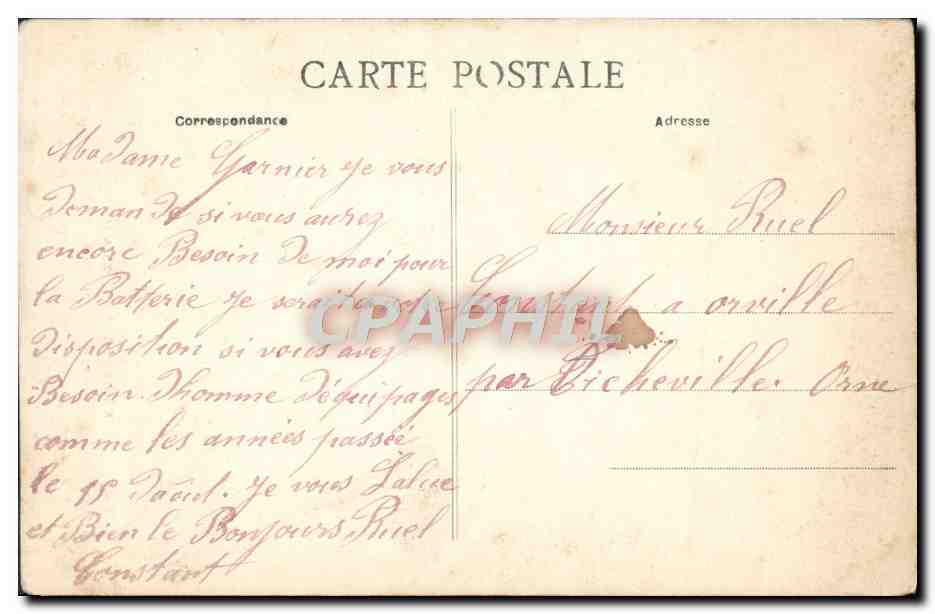 CARTE POSTALE
Correspondance
Adresse
Madame Garnier Je vous
demande si vous aurez
encore Besoin de moi pour
la Batterie Je serait a votre
disposition si vous avez
Besoin d'homme d'équipages
comme les années passée
le 15 d'août. Je vous Salue
et Bien le Bonjours Ruel
Constant
Monsieur Ruel
Constant a orville
par Ticheville. Orne
CPAPHIL